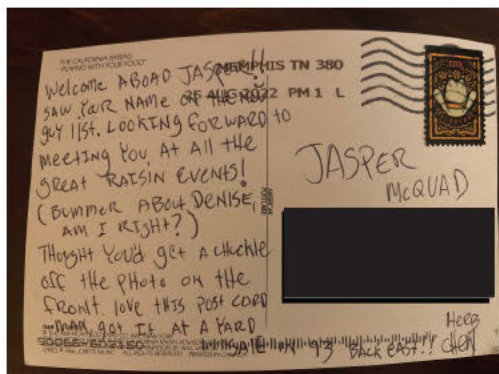 THE CALIFORNIA RAISINS
"PLAYING WITH YOUR FOOD"
MEMPHIS TN 380
25 AUG 2022 PM 1 L
WELCOME ABOAD JASPER!!
SAW YOUR NAME ON THE NEW
GUY LIST. LOOKING FORWARD TO
MEETING YOU AT ALL THE
GREAT RAISIN EVENTS!
(BUMMER ABOUT DENISE,
AM I RIGHT?)
THOUGHT YOU'D GET A CHUCKLE
OFF THE PHOTO ON THE
FRONT. LOVE THIS POST CORD
MAN, GOT IT AT A YARD
SALE IN '93 BACK EAST!!
HERB
CHEN
JASPER
MCQUAD
ALL RIGHTS RESERVED